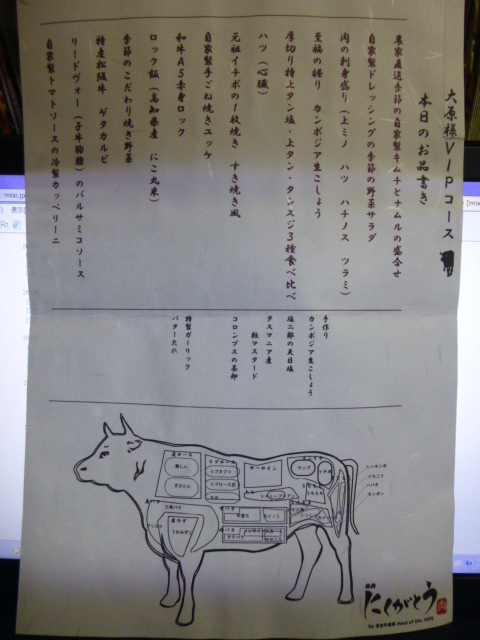 大原様VIPコース
本日のお品書き
農家直送季節の自家製キムチとナムルの盛合せ
自家製ドレッシングの季節の野菜サラダ
肉の刺身盛り（上ミノ　ハツ　ハチノス　ツラミ）
至福の握り　カンボジア生こしょう
厚切り特上タン塩・上タン・タンスジ3種食べ比べ
ハツ（心臓）
元祖イチボの1枚焼き　すき焼き風
自家製手ごね焼きユッケ
和牛A5赤身ロック
ロック飯（高知県産　にこ丸米）
季節のこだわり焼き野菜
特産松阪牛　ゲタカルビ
リードヴォー（子牛胸腺）のバルサミコソース
自家製トマトソースの冷製カッペリーニ
手作り
カンボジア生こしょう
塩二郎の天日塩
タスマニア産
粒マスタード
コロンブスの茶卵
特製ガーリック
バターたれ
肩ロース
リブロース
サーロイン
ランプ
リブロース芯
シャトーブリアン
三角バラ
カイノミ
シンシン
にくがとう